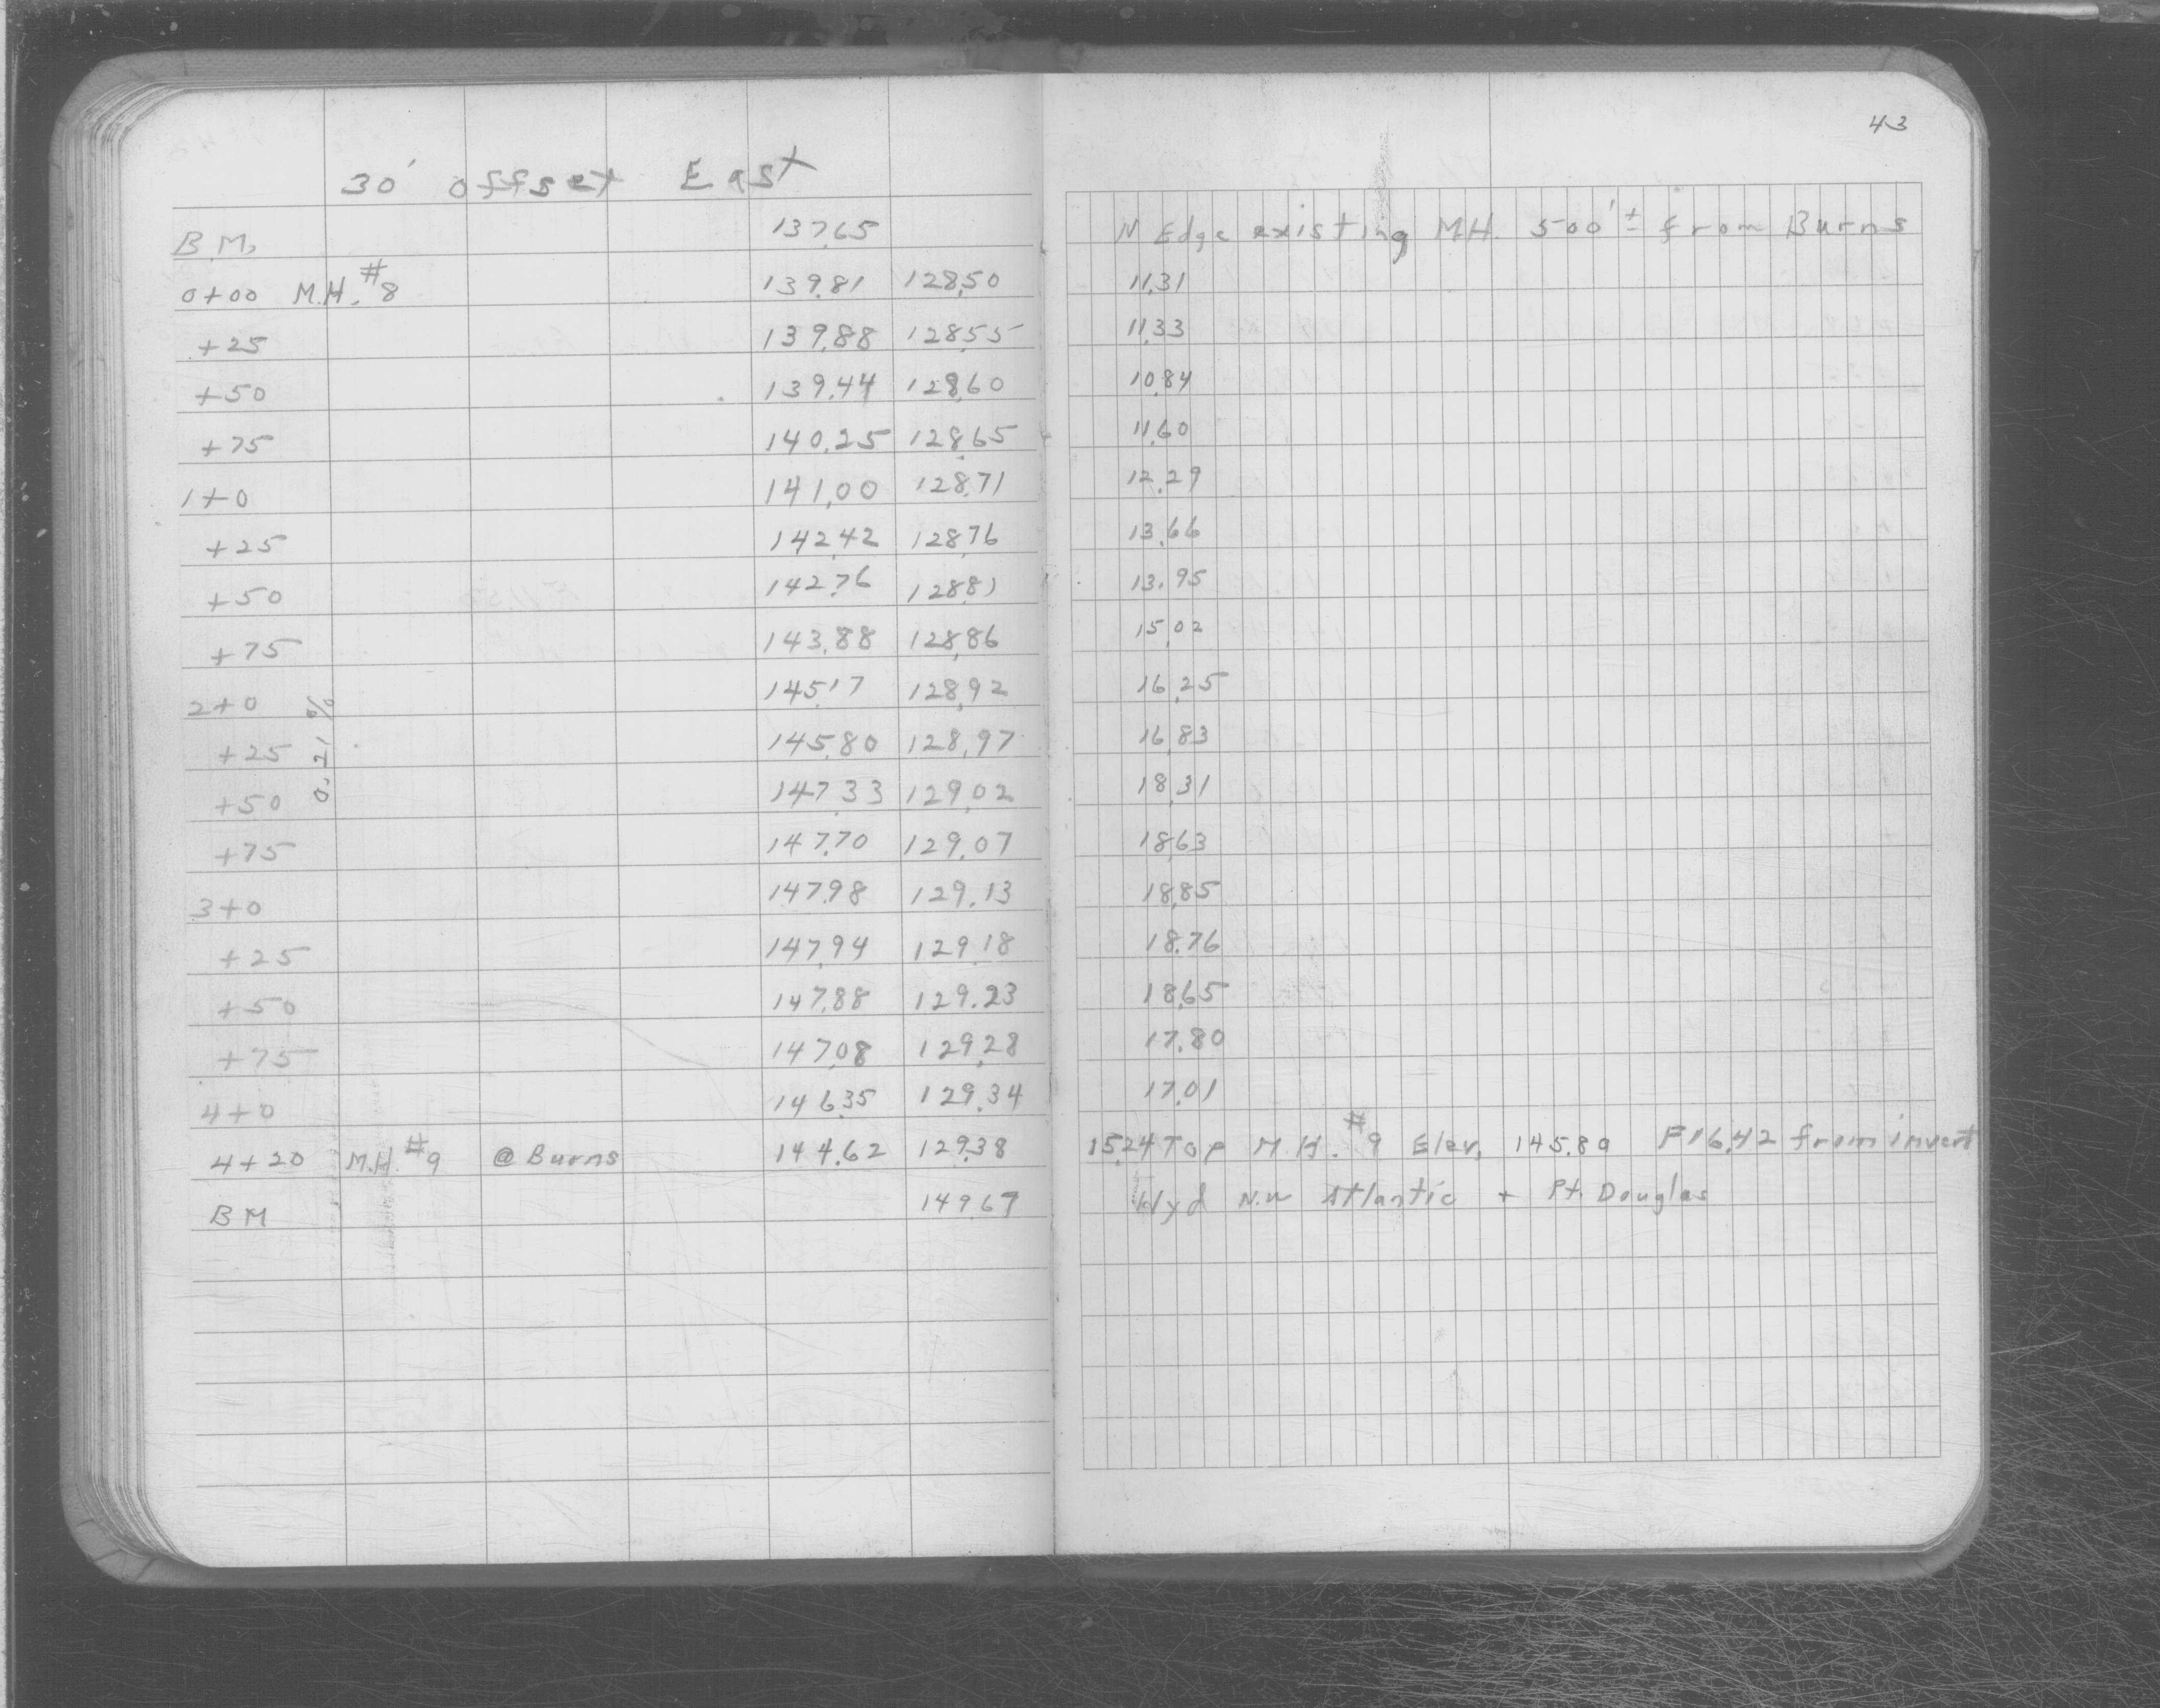 43
30' offset East
B.M. 137.65 N Edge existing M.H. 500'± from Burns
0+00 M.H. #8 139.81 128.50 11.31
+25 139.88 128.55 11.33
+50 139.44 128.60 10.84
+75 140.25 128.65 11.60
1+0 141.00 128.71 12.29
+25 142.42 128.76 13.66
+50 142.76 128.81 13.95
+75 143.88 128.86 15.02
2+0 145.17 128.92 16.25
+25 145.80 128.97 16.83
+50 147.33 129.02 18.31
+75 147.70 129.07 18.63
3+0 147.98 129.13 18.85
+25 147.94 129.18 18.76
+50 147.88 129.23 18.65
+75 147.08 129.28 17.80
4+0 146.35 129.34 17.01
0.21%
4+20 M.H. #9 @ Burns 144.62 129.38 15.24 Top M.H. #9 Elev. 145.80 F16.42 from invert
BM 149.67 Hyd N.W Atlantic + Pt. Douglas